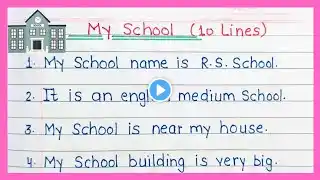 My School (10 Lines)
1. My School name is R.S. School.
2. It is an engl medium School.
3. My School is near my house.
4. My School building is very big.